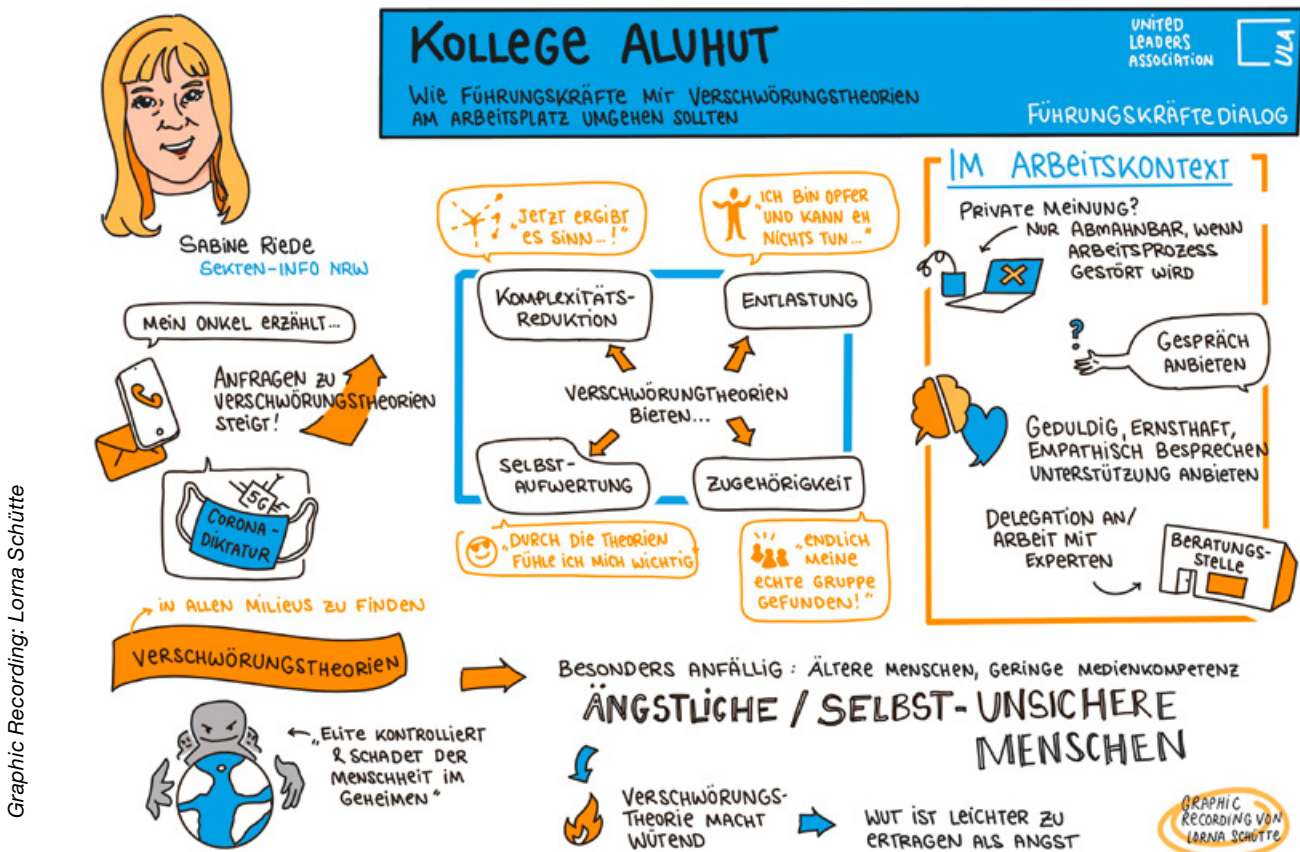 KOLLEGE ALUHUT
WIE FÜHRUNGSKRÄFTE MIT VERSCHWÖRUNGSTHEORIEN
AM ARBEITSPLATZ UMGEHEN SOLLTEN
UNITED
LEADERS
ASSOCIATION
ULA
FÜHRUNGSKRÄFTEDIALOG
SABINE RIEDE
SEKTEN-INFO NRW
MEIN ONKEL ERZÄHLT...
ANFRAGEN ZU
VERSCHWÖRUNGSTHEORIEN
STEIGT!
5G
CORONA-
DIKTATUR
IN ALLEN MILIEUS ZU FINDEN
VERSCHWÖRUNGSTHEORIEN
„ELITE KONTROLLIERT
& SCHADET DER
MENSCHHEIT IM
GEHEIMEN“
„JETZT ERGIBT
ES SINN...!“
„ICH BIN OPFER
UND KANN EH
NICHTS TUN...“
KOMPLEXITÄTS-
REDUKTION
ENTLASTUNG
VERSCHWÖRUNGTHEORIEN
BIETEN...
SELBST-
AUFWERTUNG
ZUGEHÖRIGKEIT
„DURCH DIE THEORIEN
FÜHLE ICH MICH WICHTIG“
„ENDLICH
MEINE
ECHTE GRUPPE
GEFUNDEN!“
IM ARBEITSKONTEXT
PRIVATE MEINUNG?
NUR ABMAHNBAR, WENN
ARBEITSPROZESS
GESTÖRT WIRD
?
GESPRÄCH
ANBIETEN
GEDULDIG, ERNSTHAFT,
EMPATHISCH BESPRECHEN
UNTERSTÜTZUNG ANBIETEN
DELEGATION AN/
ARBEIT MIT
EXPERTEN
BERATUNGS-
STELLE
BESONDERS ANFÄLLIG: ÄLTERE MENSCHEN, GERINGE MEDIENKOMPETENZ
ÄNGSTLICHE / SELBST-UNSICHERE
MENSCHEN
VERSCHWÖRUNGS-
THEORIE MACHT
WÜTEND
WUT IST LEICHTER ZU
ERTRAGEN ALS ANGST
GRAPHIC
RECORDING VON
LORNA SCHÜTTE
Graphic Recording: Lorna Schütte